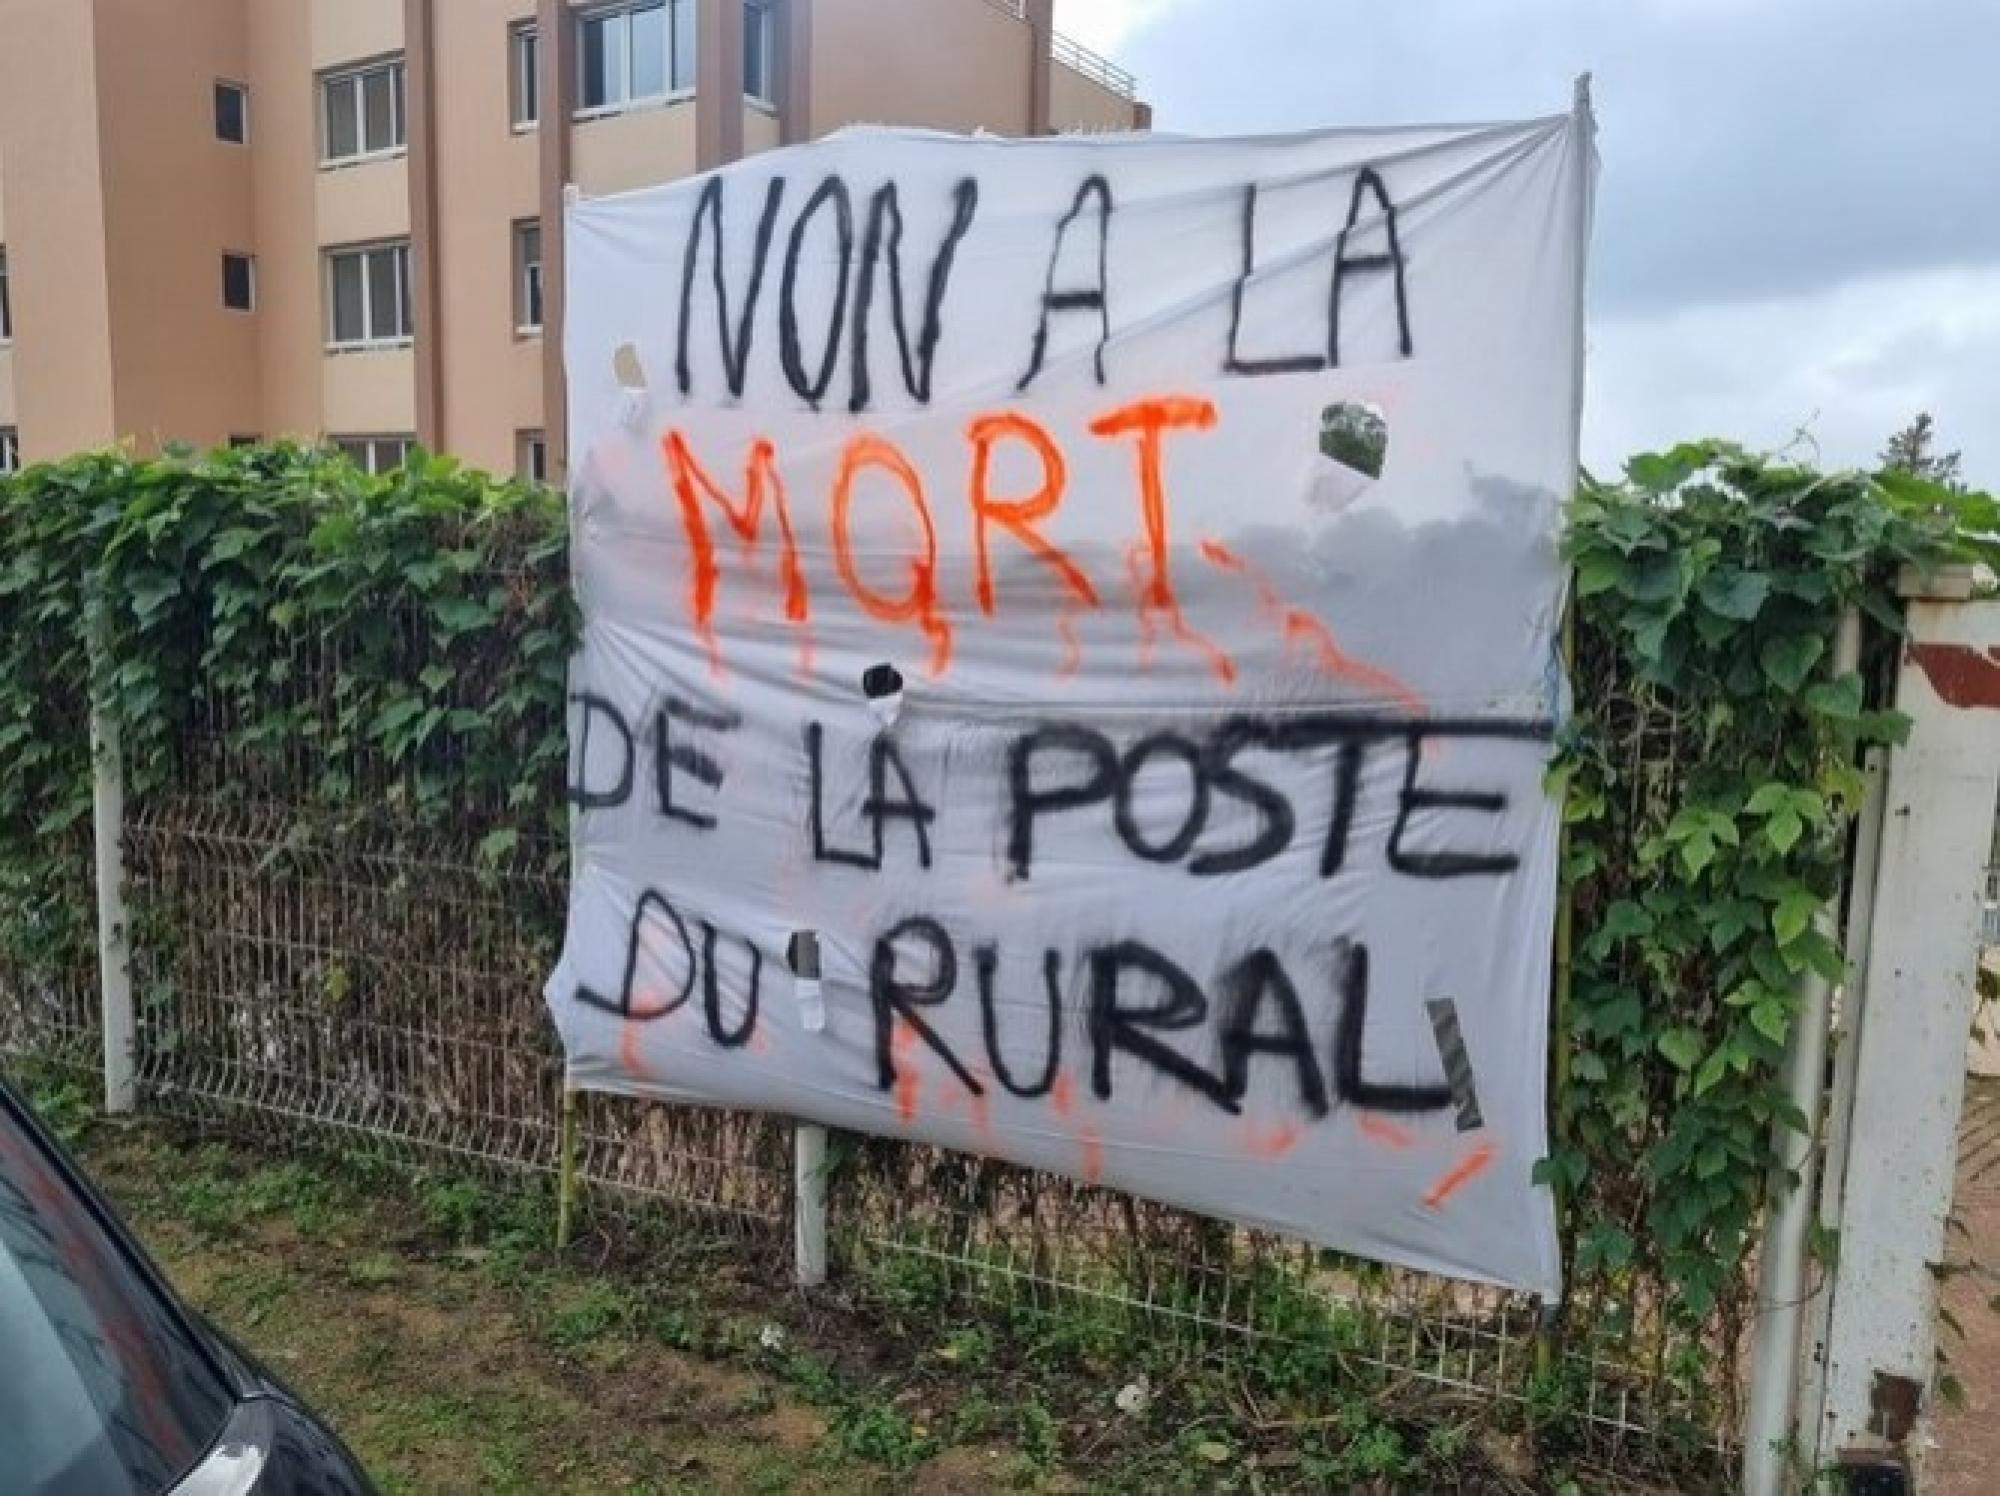 NON A LA
MORT
DE LA POSTE
DU RURAL